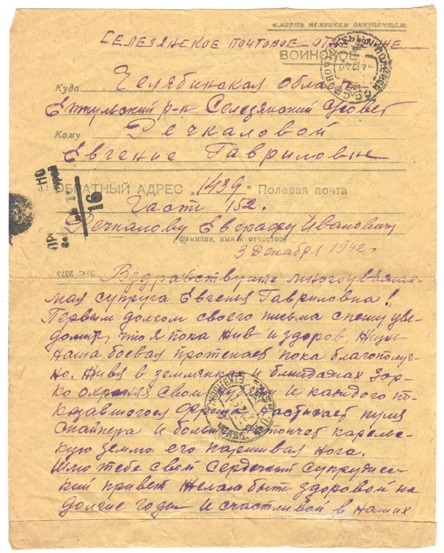 Смерть немецким оккупантам.
СЕЛЕЗЯНСКОЕ ПОЧТОВОЕ ОТДЕЛЕНИЕ
ВОИНСКОЕ
Куда Челябинская область
Еткульский р-н Селезянский Совет
Кому Речкаловой
Евгение Гавриловне
ОБРАТНЫЙ АДРЕС „1439" Полевая почта
Части 152.
Речкалову Евграфу Ивановичу
фамилия, имя и отчество
3 декабря 1942 г.
Здравствуйте многоуважае-
мая супруга Евгенья Гавриловна!
Первым долгом своего письма спешу уве-
домить, что я пока жив и здоров. Жизнь
наша боевая протекает пока благополуч-
но. Живя в землянках и блиндажах зор-
ко охраняя свои И каждого по-
казавшегося фрица настигает пуля
снайпера и больше не топчет карель-
скую землю его паршивая нога.
Шлю тебе свой сердечный супружес-
кий привет желаю быть здоровой на
долгие годы и счастливой в наших